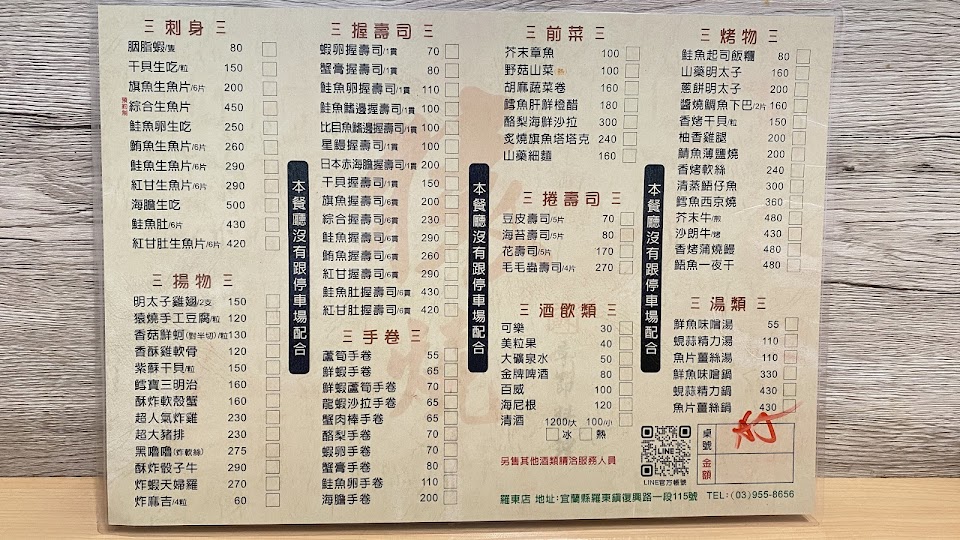 三 刺身 三
胭脂蝦/隻 80
干貝生吃/粒 150
旗魚生魚片/6片 200
預約制 綜合生魚片 450
鮭魚卵生吃 250
鮪魚生魚片/6片 260
鮭魚生魚片/6片 290
紅甘生魚片/6片 290
海膽生吃 500
鮭魚肚/6片 430
紅甘肚生魚片/6片 420
三 揚物 三
明太子雞翅/2支 150
猿燒手工豆腐/粒 120
香菇鮮蚵(對半切)/粒 130
香酥雞軟骨 120
紫酥干貝/粒 150
鱈寶三明治 160
酥炸軟殼蟹 160
超人氣炸雞 230
超大豬排 230
黑嚕嚕(炸軟絲) 275
酥炸骰子牛 290
炸蝦天婦羅 270
炸麻吉/4粒 60
三 握壽司 三
蝦卵握壽司/1貫 70
蟹膏握壽司/1貫 80
鮭魚卵握壽司/1貫 110
鮭魚鰭邊握壽司/1貫 100
比目魚鰭邊握壽司/1貫 100
星鰻握壽司/1貫 100
日本赤海膽握壽司/1貫 200
干貝握壽司/1貫 150
旗魚握壽司/6貫 200
綜合握壽司/6貫 230
鮭魚握壽司/6貫 290
鮪魚握壽司/6貫 260
紅甘握壽司/6貫 290
鮭魚肚握壽司/6貫 430
紅甘肚握壽司/6貫 420
三 手卷 三
蘆筍手卷 55
鮮蝦手卷 65
鮮蝦蘆筍手卷 70
龍蝦沙拉手卷 65
蟹肉棒手卷 65
酪梨手卷 70
蝦卵手卷 70
蟹膏手卷 80
鮭魚卵手卷 110
海膽手卷 200
三 前菜 三
芥末章魚 100
野菇山菜(熱) 100
胡麻蔬菜卷 160
鱈魚肝鮮橙醋 180
酪梨海鮮沙拉 300
炙燒旗魚塔塔克 240
山藥細麵 160
三 捲壽司 三
豆皮壽司/5片 70
海苔壽司/5片 80
花壽司/5片 170
毛毛蟲壽司/4片 270
三 酒飲類 三
可樂 30
美粒果 40
大礦泉水 50
金牌啤酒 80
百威 100
海尼根 120
清酒 1200/大 100/小
冰 熱
另售其他酒類請洽服務人員
三 烤物 三
鮭魚起司飯糰 80
山藥明太子 160
蔥餅明太子 200
醬燒鯛魚下巴/2片 160
香烤干貝/粒 150
柚香雞腿 200
鯖魚薄鹽燒 200
香烤軟絲 240
清蒸鯃仔魚 300
鱈魚西京燒 360
芥末牛/煎 480
沙朗牛/烤 430
香烤蒲燒鰻 480
鯃魚一夜干 480
三 湯類 三
鮮魚味噌湯 55
蜆蒜精力湯 110
魚片薑絲湯 110
鮮魚味噌鍋 330
蜆蒜精力鍋 430
魚片薑絲鍋 430
本餐廳沒有跟停車場配合
本餐廳沒有跟停車場配合
本餐廳沒有跟停車場配合
LINE
LINE官方帳號
桌號
金額
羅東店 地址:宜蘭縣羅東鎮復興路一段115號 TEL:(03)955-8656